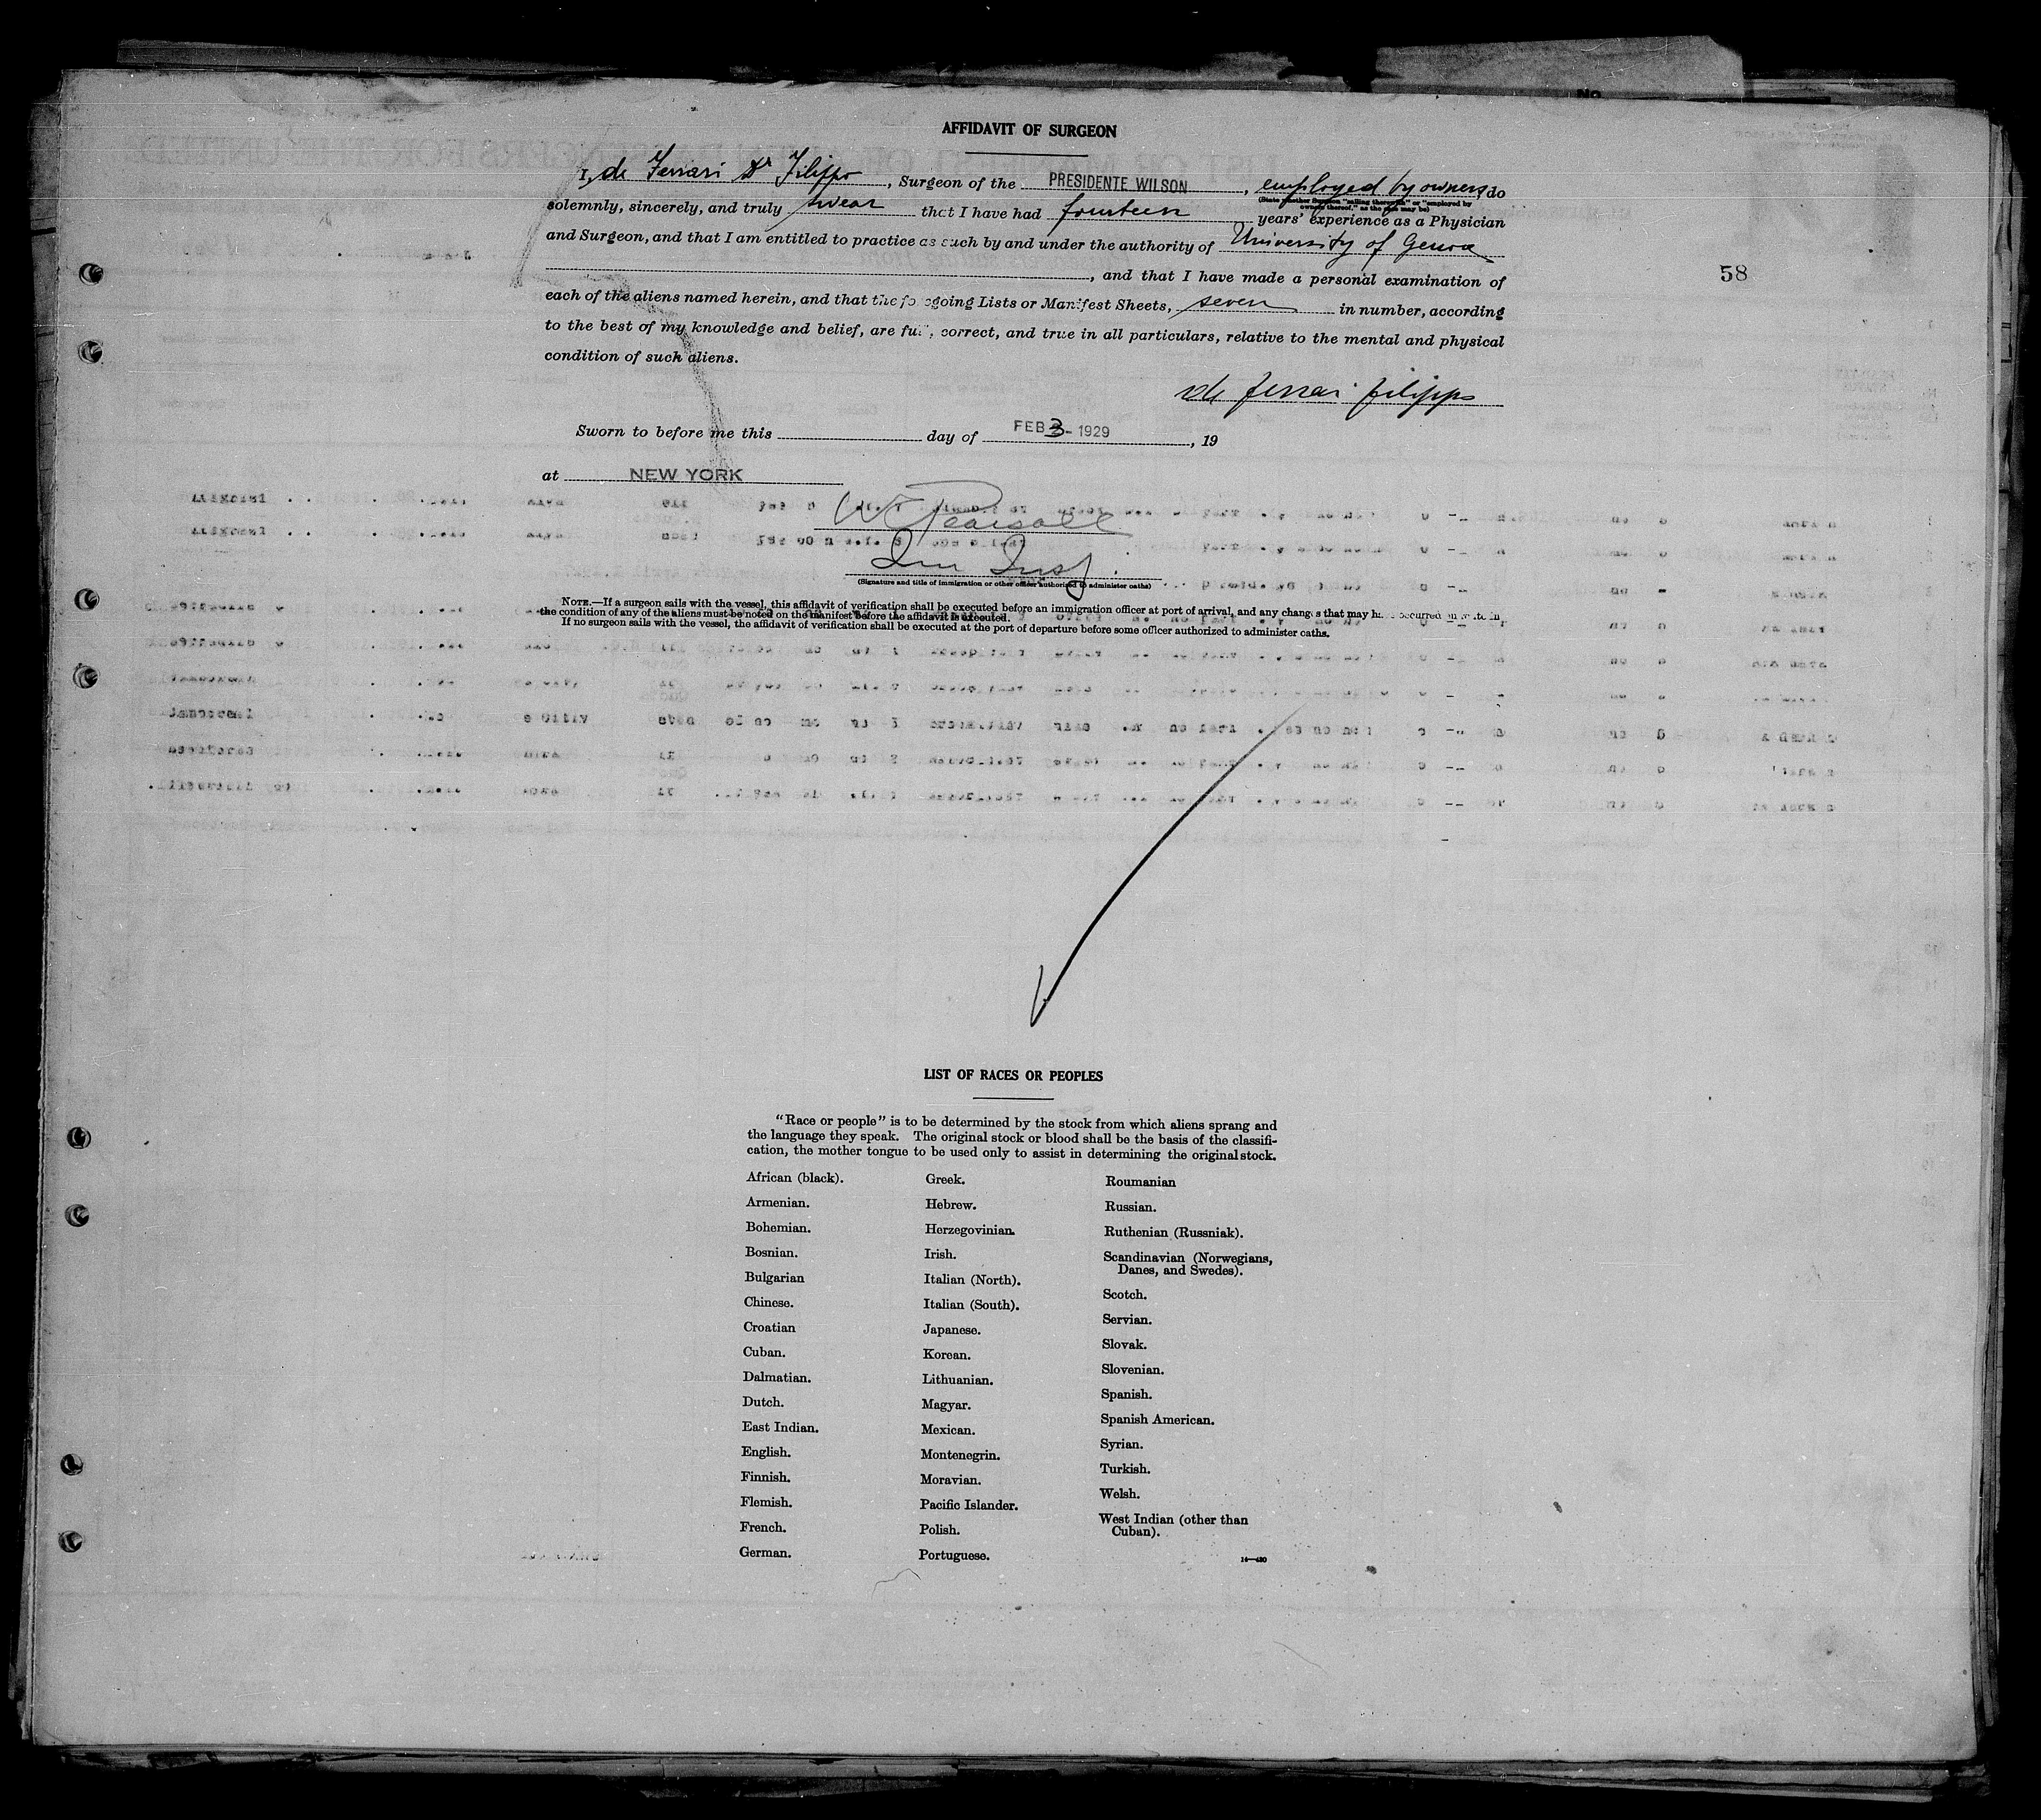 No
AFFIDAVIT OF SURGEON
I, de Ferrari Dr Filippo, Surgeon of the PRESIDENTE WILSON, employed by owners, do
(State whether Surgeon "sailing therewith" or "employed by owners thereof," as the case may be)
solemnly, sincerely, and truly swear that I have had fourteen years' experience as a Physician
and Surgeon, and that I am entitled to practice as such by and under the authority of University of Genoa
, and that I have made a personal examination of
58
each of the aliens named herein, and that the foregoing Lists or Manifest Sheets, seven in number, according
to the best of my knowledge and belief, are full, correct, and true in all particulars, relative to the mental and physical
condition of such aliens.
de Ferrari Filippo
Sworn to before me this day of FEB 3 - 1929, 19
at NEW YORK
Pearsall
Imm Insp.
(Signature and title of immigration or other officer authorized to administer oaths)
NOTE.—If a surgeon sails with the vessel, this affidavit of verification shall be executed before an immigration officer at port of arrival, and any changes that may have occurred in
the condition of any of the aliens must be noted on the manifest before the affidavit is executed.
If no surgeon sails with the vessel, the affidavit of verification shall be executed at the port of departure before some officer authorized to administer oaths.
LIST OF RACES OR PEOPLES
"Race or people" is to be determined by the stock from which aliens sprang and
the language they speak. The original stock or blood shall be the basis of the classifi-
cation, the mother tongue to be used only to assist in determining the original stock.
African (black).
Armenian.
Bohemian.
Bosnian.
Bulgarian
Chinese.
Croatian
Cuban.
Dalmatian.
Dutch.
East Indian.
English.
Finnish.
Flemish.
French.
German.
Greek.
Hebrew.
Herzegovinian.
Irish.
Italian (North).
Italian (South).
Japanese.
Korean.
Lithuanian.
Magyar.
Mexican.
Montenegrin.
Moravian.
Pacific Islander.
Polish.
Portuguese.
Roumanian
Russian.
Ruthenian (Russniak).
Scandinavian (Norwegians,
Danes, and Swedes).
Scotch.
Servian.
Slovak.
Slovenian.
Spanish.
Spanish American.
Syrian.
Turkish.
Welsh.
West Indian (other than
Cuban).
14—430